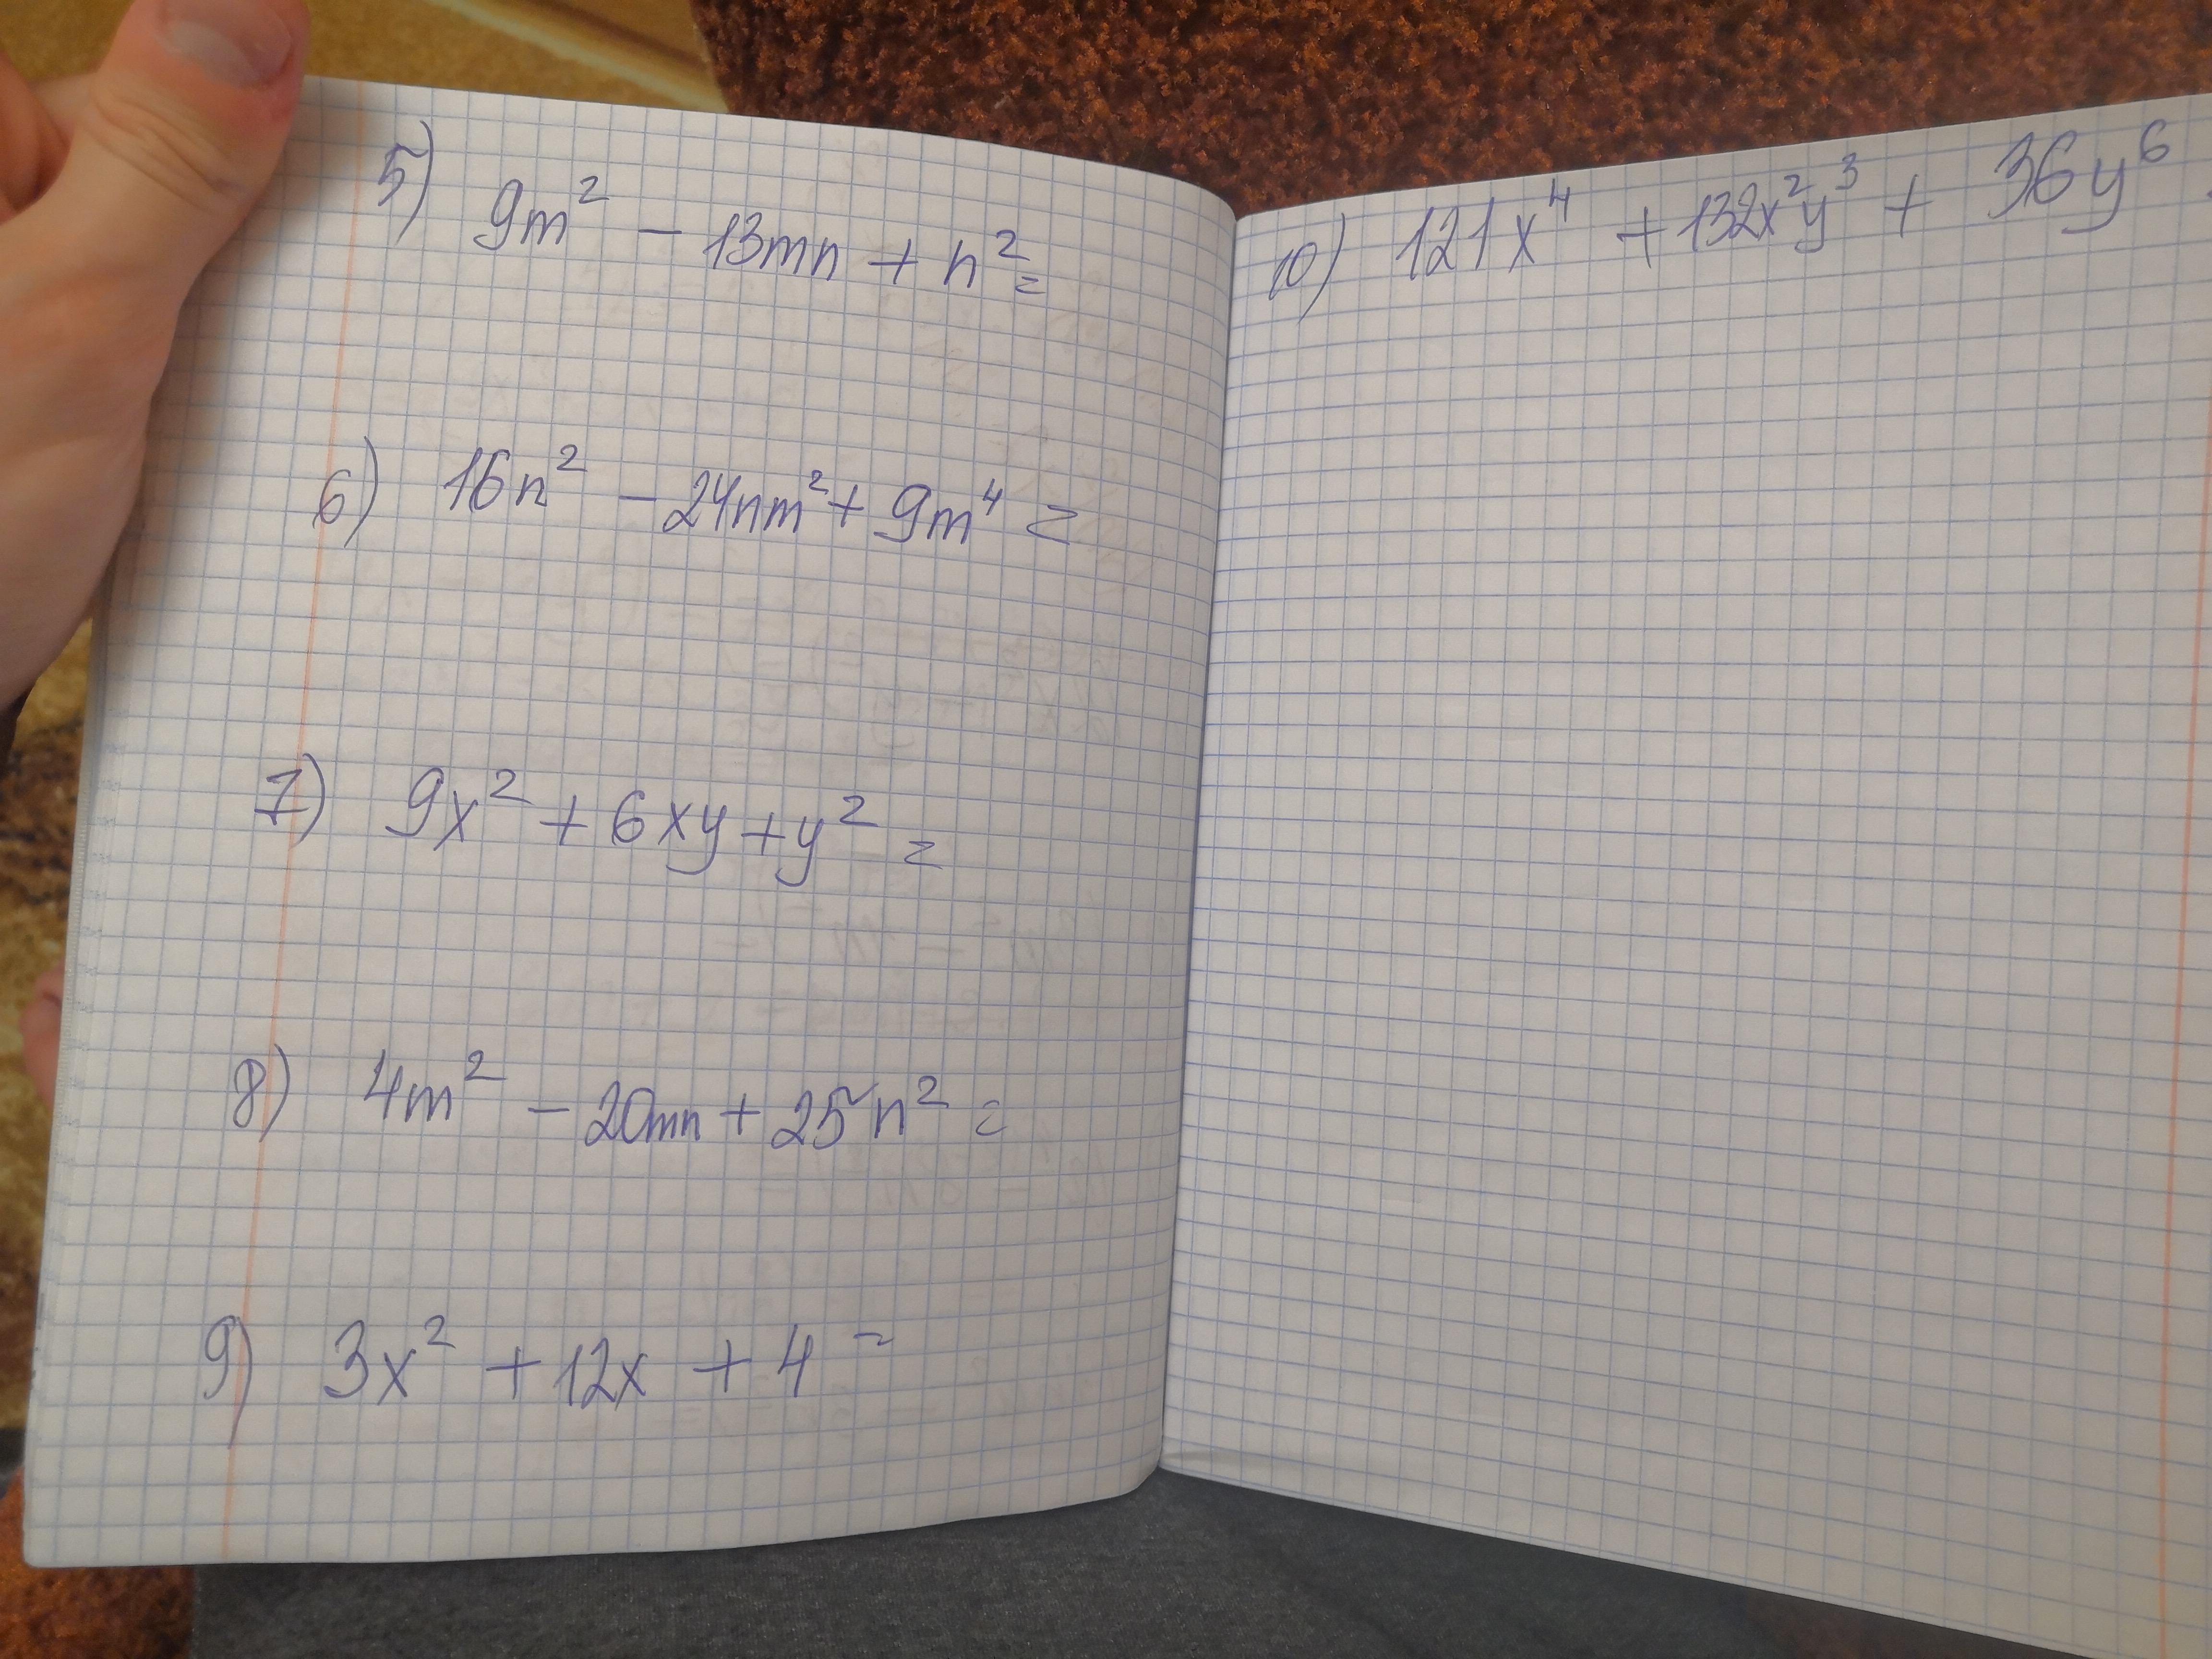 5) 9m² - 13mn + n² =
6) 16n² - 24nm² + 9m⁴ =
7) 9x² + 6xy + y² =
8) 4m² - 20mn + 25n² =
9) 3x² + 12x + 4 =
10) 121x⁴ + 132x²y³ + 36y⁶